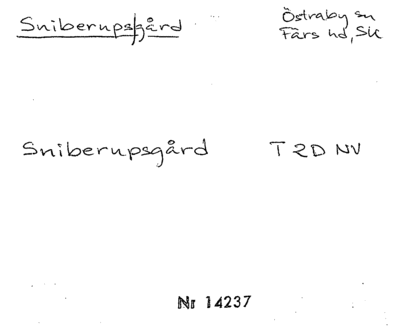 Sniberups|gård
Östraby sn
Färs hd, Sk
Sniberupsgård T 2D NV
Nr 14237